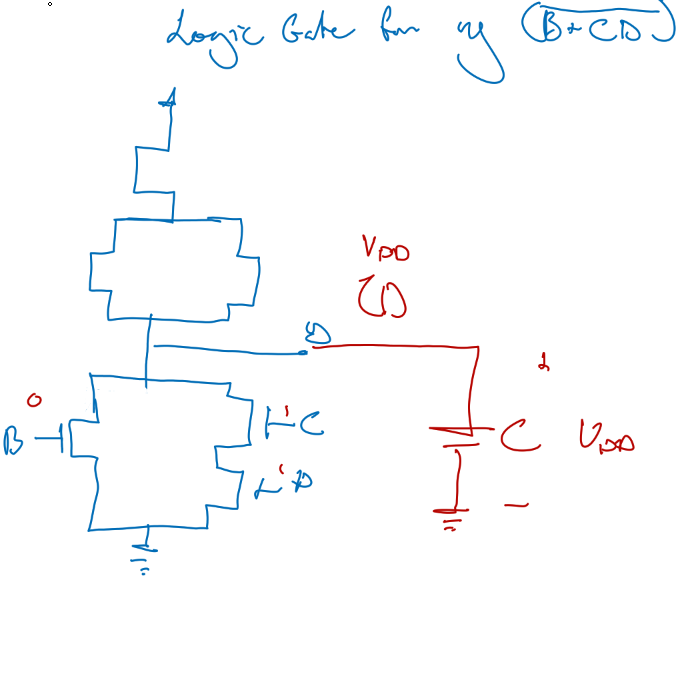 Logic Gate for (B+CD)
VDD
0
B
1 C
1 D
C VDD